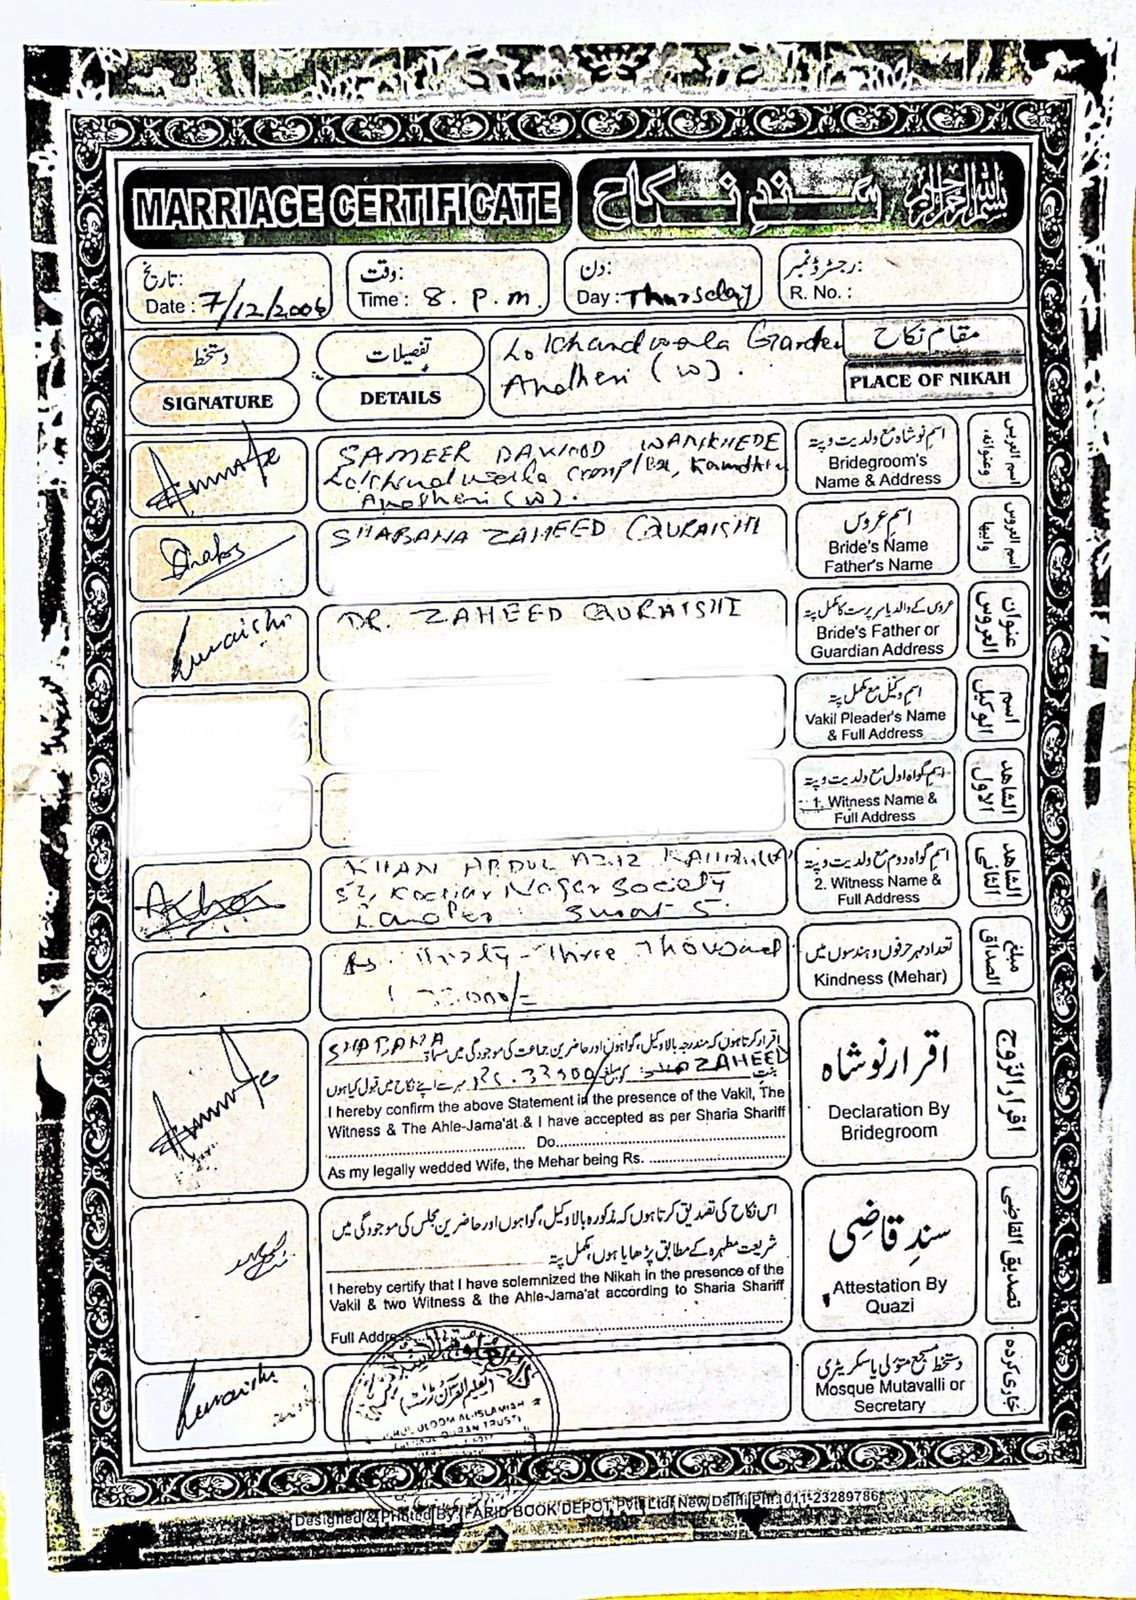 MARRIAGE CERTIFICATE
سندِ نکاح
بسم اللہ الرحمن الرحیم
تاریخ:
Date : 7/12/2006
وقت:
Time : 8. P.m.
دن:
Day : Thursday
رجسٹرڈ نمبر:
R. No. :
دستخط
SIGNATURE
تفصیلات
DETAILS
Lokhandwala Garden
Andheri (W).
مقام نکاح
PLACE OF NIKAH
SAMEER DAWOOD WANKHEDE
Lokhandwala Complex,
Andheri (W).
اسم نوشاہ مع ولدیت و پتہ
Bridegroom's
Name & Address
SHABANA ZAHEED QURAISHI
اسم عروس
Bride's Name
Father's Name
Quraishi
DR. ZAHEED QURAISHI
عروس کے والد یا سرپرست کا مکمل پتہ
Bride's Father or
Guardian Address
عنوان
العروس
اسم وکیل مع مکمل پتہ
Vakil Pleader's Name
& Full Address
اسم
الوکیل
اسم گواہ اول مع ولدیت و پتہ
1. Witness Name &
Full Address
الشاهد
الاول
KHAN ABDUL AZIZ
Nagar Society
Surat 5.
اسم گواہ دوم مع ولدیت و پتہ
2. Witness Name &
Full Address
الشاهد
الثانی
Rs. Thirty-Three Thousand
33,000/=
تعداد مہر حرفوں و ہندسوں میں
Kindness (Mehar)
مبلغ
الصداق
SHABANA
اقرار کرتا ہوں کہ مندرجہ بالا وکیل، گواہوں اور حاضرین جماعت کی موجودگی میں مسماۃ
ZAHEED
بنت کو مبلغ Rs. 33000/ مہر سے اپنے نکاح میں قبول کیا ہوں
I hereby confirm the above Statement in the presence of the Vakil, The
Witness & The Ahle-Jama'at & I have accepted as per Sharia Shariff
Do
As my legally wedded Wife, the Mehar being Rs.
اقرار نوشاہ
Declaration By
Bridegroom
اقرار الزوج
اس نکاح کی تصدیق کرتا ہوں کہ مذکورہ بالا وکیل، گواہوں اور حاضرین مجلس کی موجودگی میں
شریعت مطہرہ کے مطابق پڑھایا ہوں، مکمل پتہ
I hereby certify that I have solemnized the Nikah in the presence of the
Vakil & two Witness & the Ahle-Jama'at according to Sharia Shariff
Full Address
سندِ قاضی
Attestation By
Quazi
تصدیق القاضی
Quraishi
AL-ISLAMIAH
QURAN TRUST
دستخط مسجد متولی یا سکریٹری
Mosque Mutavalli or
Secretary
جاری کردہ
Designed & Printed By : FARID BOOK DEPOT Pvt. Ltd. New Delhi Ph : 011-23289786